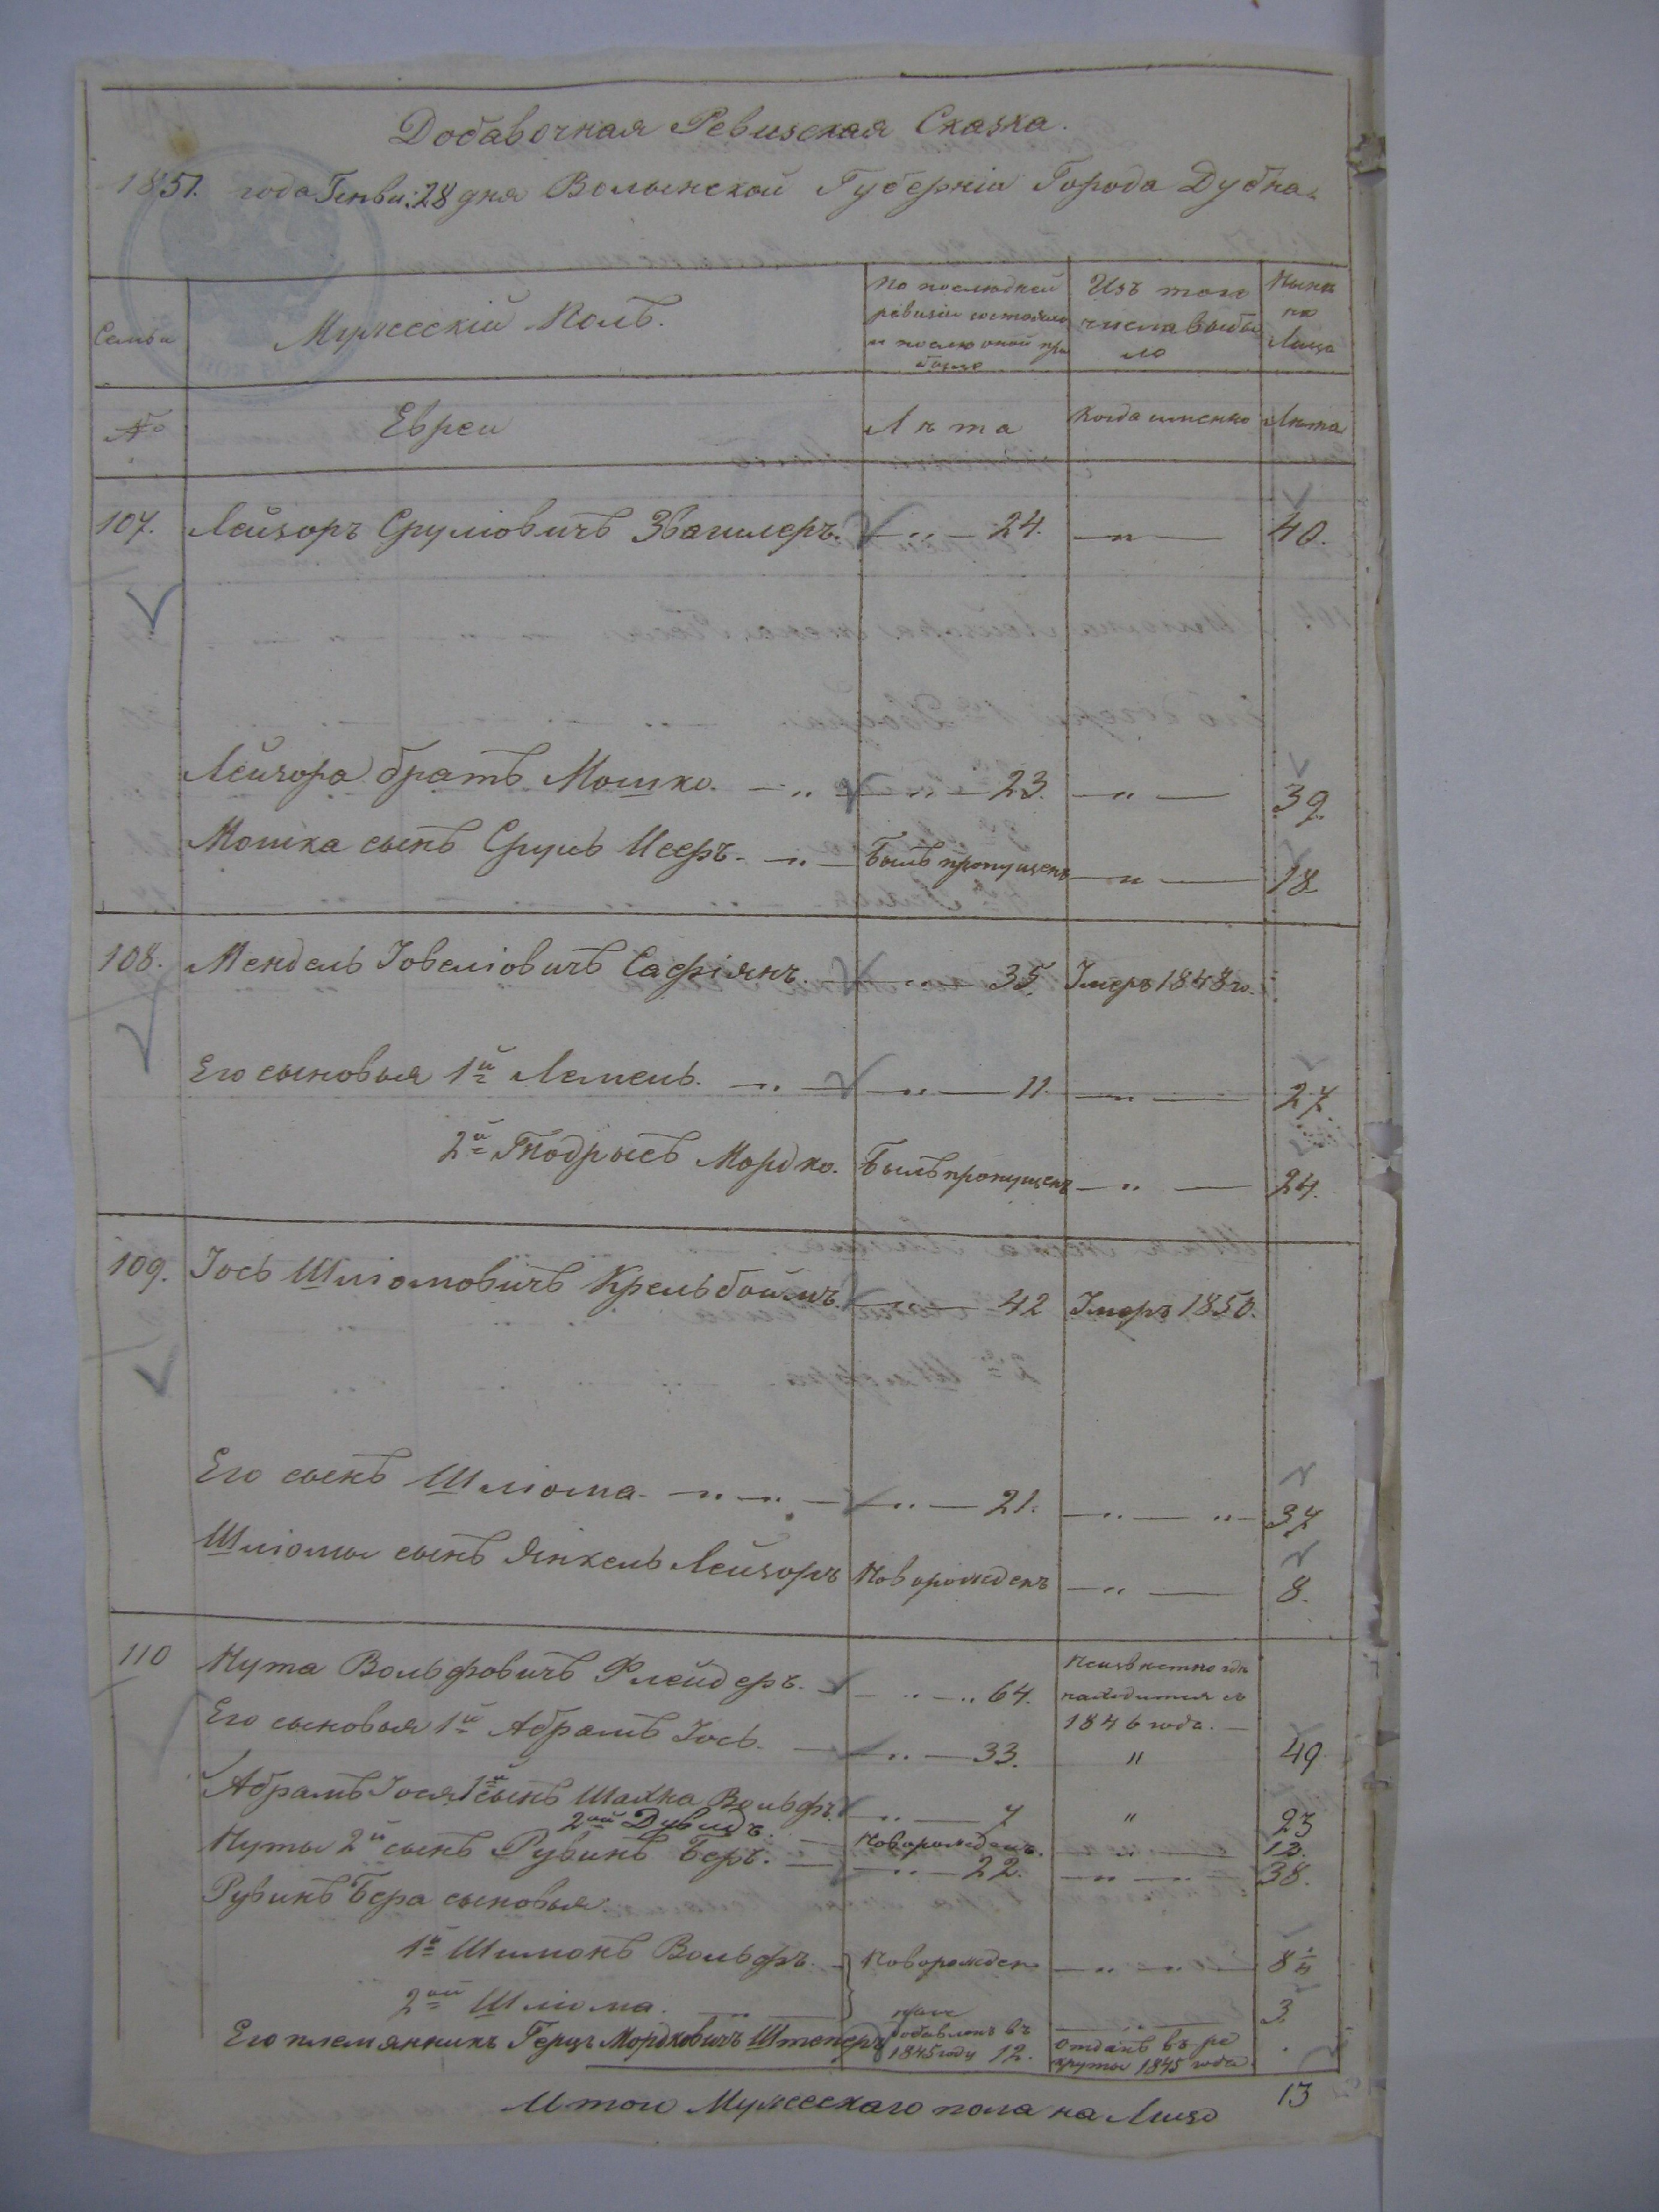 Добавочная Ревизская Сказка.
1851. года Генвн: 28 дня Волынской Губерніи Города Дубна.
Семьи
Мужескій Полъ.
По последней ревизіи состояло и после оной прибыло
Изъ того числа выбыло
Нынѣ на Лицо
№
Евреи
Лѣта
Когда именно
Лѣта
107. Лейзоръ Сруліовичъ Звагилеръ. — „ — 24. — „ — 40.
Лейзора братъ Мошко. — „ — „ — 23. — „ — 39.
Мошка сынъ Сруль Исеръ. — „ — Былъ пропущенъ — „ — 18.
108. Мендель Іовеліовичъ Сафіянъ. — „ — 35. Умеръ 1848 го.
Его сыновья 1й Лемель. — „ — „ — 11. — „ — 27.
2й Тодрысъ Мордко. Былъ пропущенъ — „ — 24.
109. Іось Шліомовичъ Крельбоймъ. — „ — 42 Умеръ 1850.
Его сынъ Шліома. — „ — „ — „ — 21. — „ — „ — 37
Шліомы сынъ Янкель Лейзоръ Новорожденъ — „ — 8.
110 Нута Вольфовичъ Флейдеръ. — „ — „ 64. Неизвѣстно гдѣ находится съ 1846 года. —
Его сыновья 1й Абрамъ Іось. — „ — 33. „ 49
Абрамъ Іося 1й сынъ Шахна Вольфъ. „ — 7 „ 23
2ой Дувидъ. — Новорожденъ. — „ — 13.
Нуты 2й сынъ Рувинъ Беръ. — „ — 22. — „ — „ — 38.
Рувинъ Бера сыновья:
1й Шимонъ Вольфъ. Новорожден — „ — „ — 8
2ой Шліома. — „ — 3
Его племянникъ Герцъ Мордковичъ Штоперъ добавленъ въ 1845 году 12. отданъ въ рекруты 1845 года.
Итого Мужескаго пола на Лицо 13